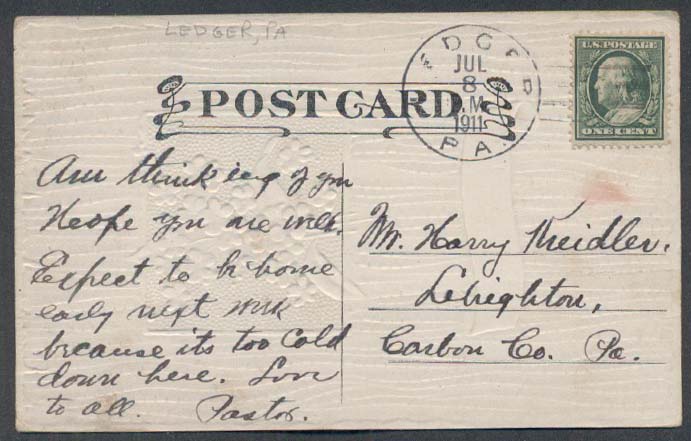 LEDGER, PA
EDGER
JUL
8
M
1911
PA.
U.S. POSTAGE
ONE CENT
POST CARD.
Am thinking of you
Hope you are well.
Expect to be home
early next week
because its too cold
down here. Love
to all. Pastor.
Mr. Harry Kreidler.
Lehighton,
Carbon Co. Pa.